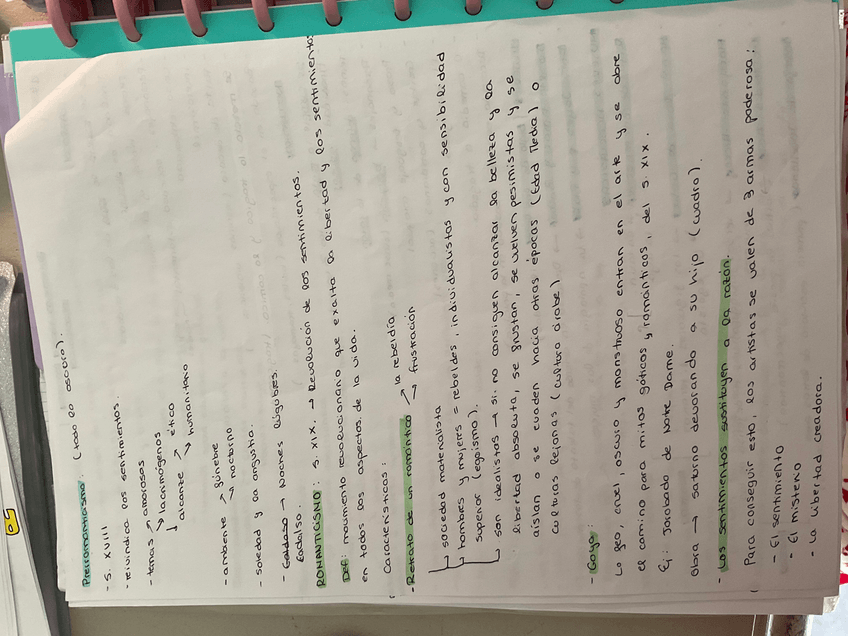 Prerromanticismo: (todo lo oscuro).
- S. XVIII
- reivindica los sentimientos.
- temas → amorosos
→ lacrimógenos
↓
alcance → ético
→ humanitario
- ambiente → fúnebre
→ nocturno
- soledad y la angustia.
- Cadalso → Noches lúgubres.
Cadalso.
ROMANTICISMO: S. XIX. → Revolución de los sentimientos.
Def: movimiento revolucionario que exalta la libertad y los sentimientos
en todos los aspectos de la vida.
Características:
- Retrato de un romántico → la rebeldía
→ frustración
↳ sociedad materialista
↳ hombres y mujeres = rebeldes, individualistas y con sensibilidad
superior (egoísmo).
↳ son idealistas → si no consiguen alcanzar la belleza y la
libertad absoluta, se frustan, se vuelven pesimistas y se
aislan o se evaden hacia otras épocas (Edad Media) o
culturas lejanas (cultura árabe)
- Goya:
Lo feo, cruel, oscuro y monstruoso entran en el arte y se abre
el camino para mitos góticos y románticos, del S. XIX.
Ej: Jorobado de Notre Dame.
Obra → saturno devorando a su hijo (cuadro).
- Los sentimientos sustituyen a la razón.
Para conseguir esto, los artistas se valen de 3 armas poderosa:
- El sentimiento
- El misterio
- La libertad creadora.